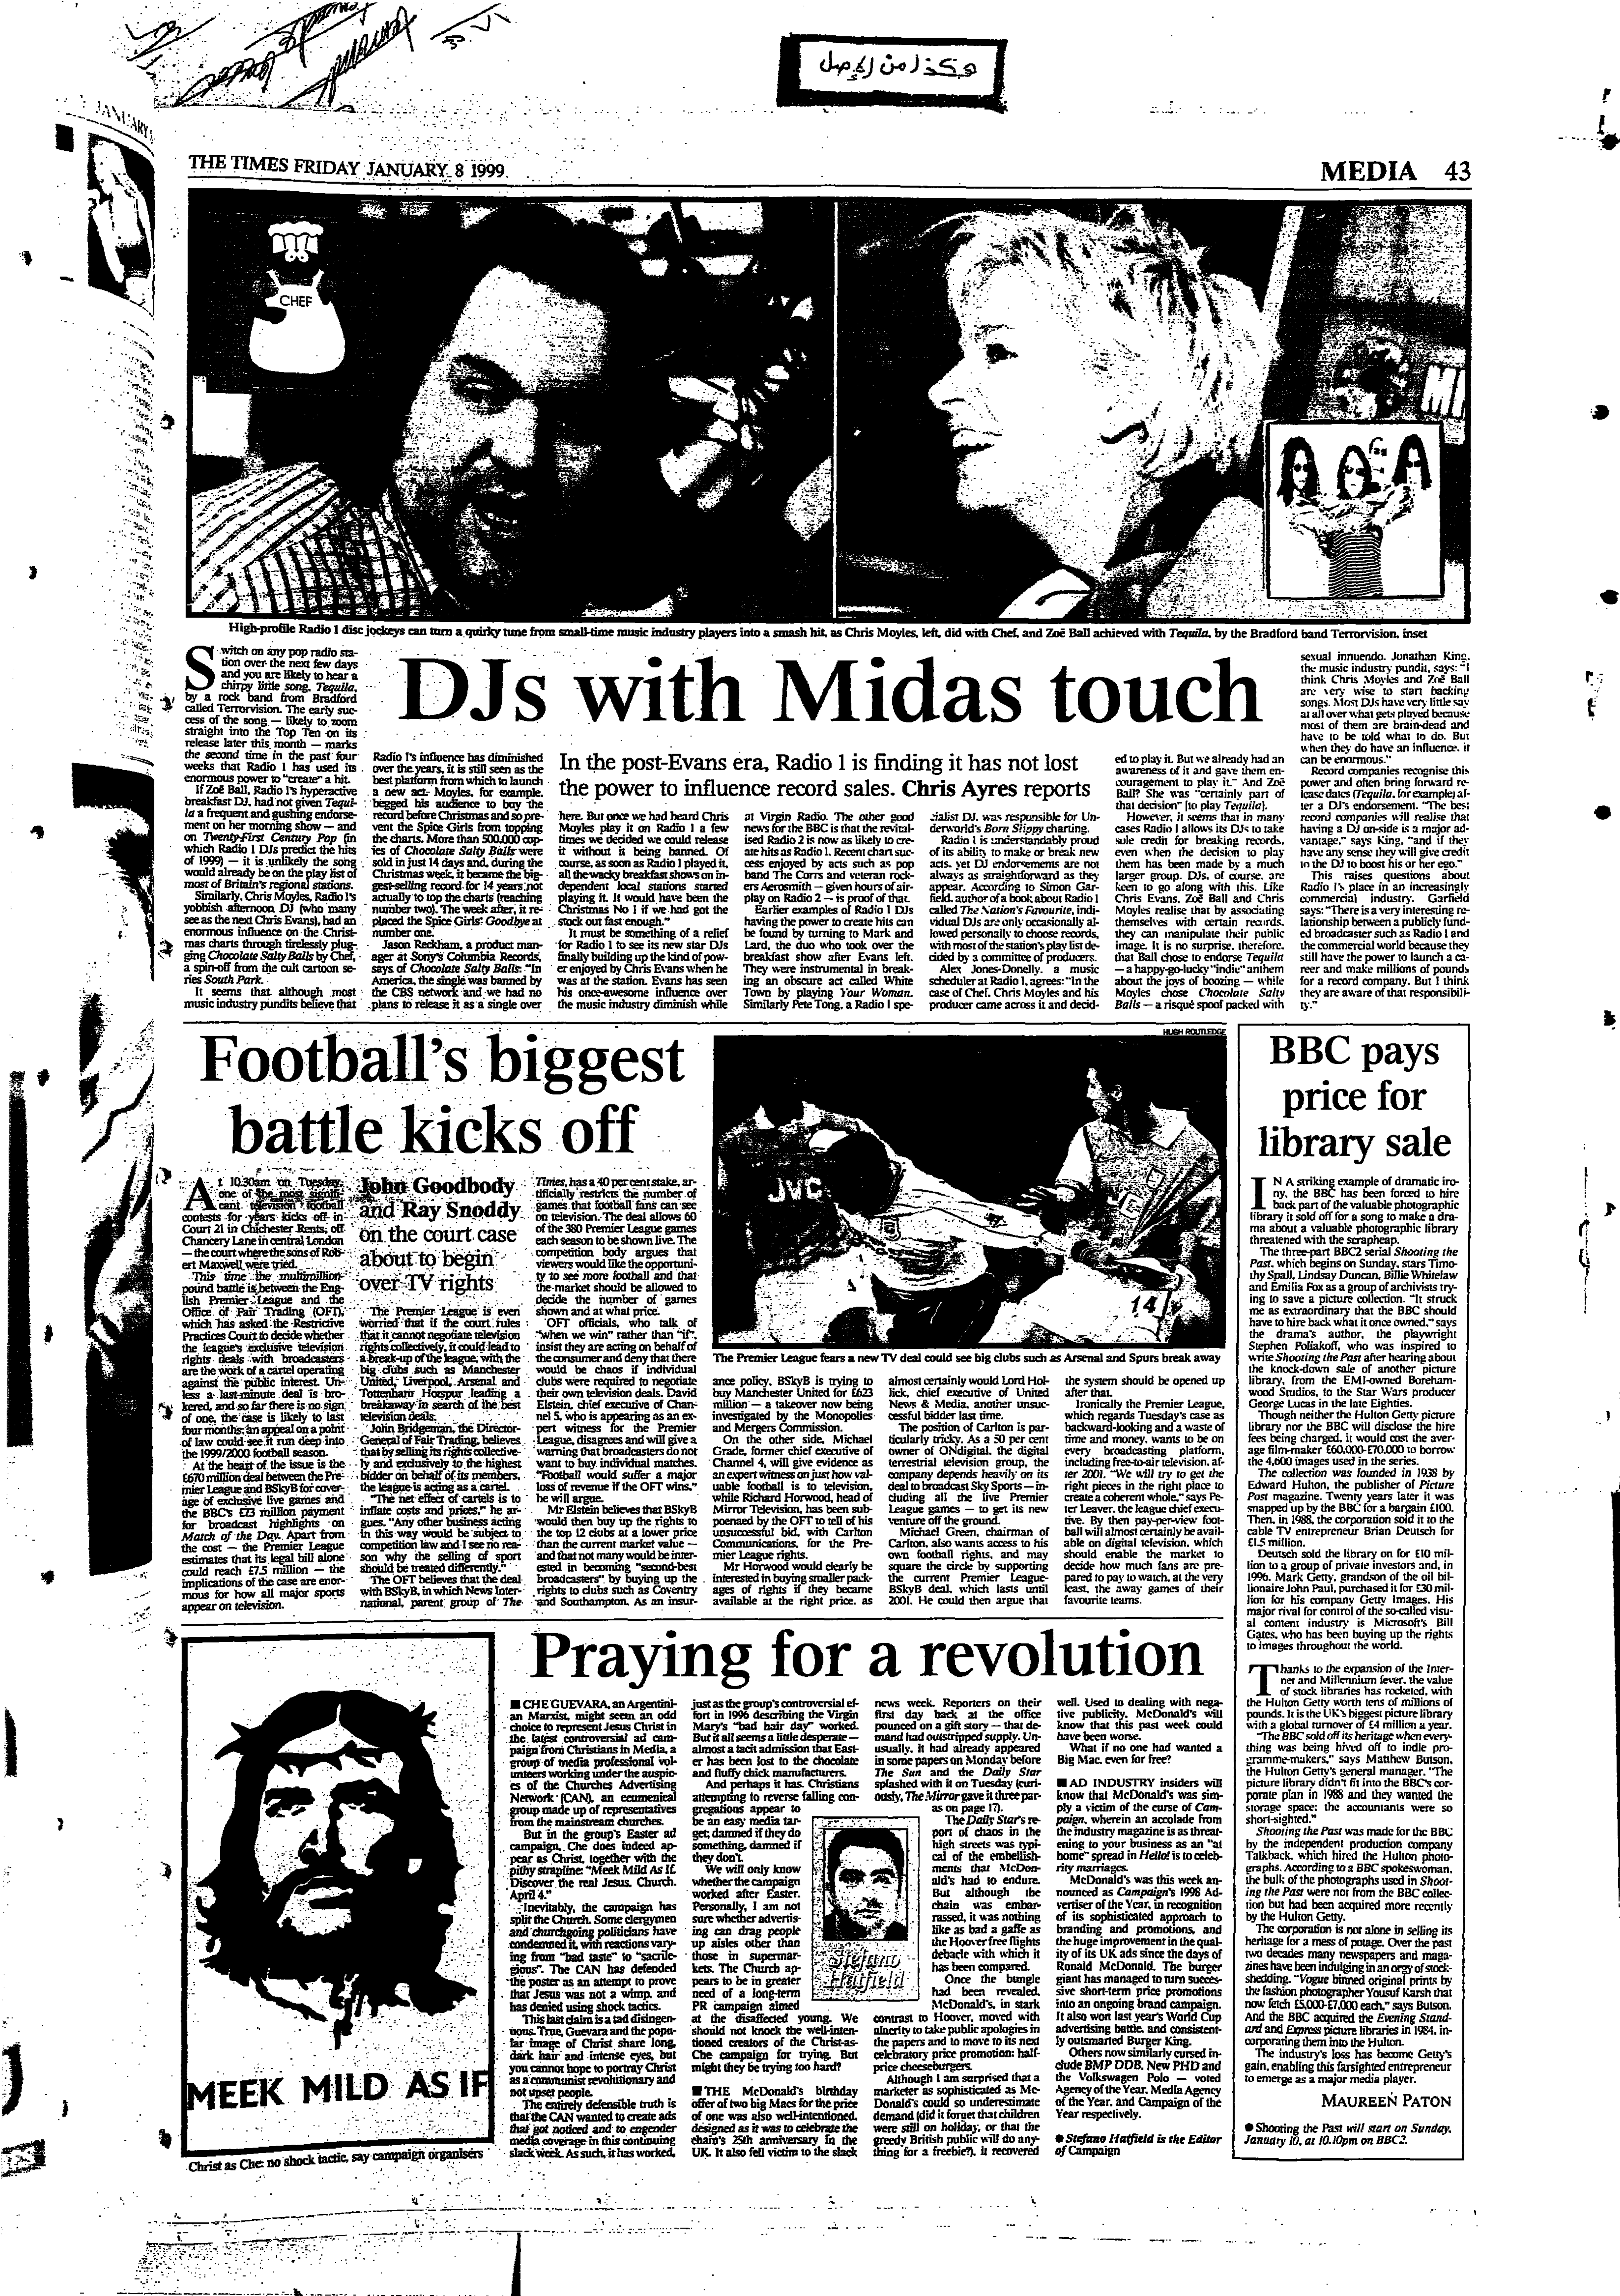 هكذا من الاصل
JANUARY
THE TIMES FRIDAY JANUARY 8 1999
MEDIA 43
CHEF
High-profile Radio 1 disc jockeys can turn a quirky tune from small-time music industry players into a smash hit, as Chris Moyles, left, did with Chef, and Zoë Ball achieved with Tequila, by the Bradford band Terrorvision, inset
DJs with Midas touch
In the post-Evans era, Radio 1 is finding it has not lost
the power to influence record sales. Chris Ayres reports
Switch on any pop radio sta-
tion over the next few days
and you are likely to hear a
chirpy little song, Tequila,
by a rock band from Bradford
called Terrorvision. The early suc-
cess of the song — likely to zoom
straight into the Top Ten on its
release later this month — marks
the second time in the past four
weeks that Radio 1 has used its
enormous power to "create" a hit.
If Zoë Ball, Radio 1's hyperactive
breakfast DJ, had not given Tequi-
la a frequent and gushing endorse-
ment on her morning show — and
on Twenty-First Century Pop (in
which Radio 1 DJs predict the hits
of 1999) — it is unlikely the song
would already be on the play list of
most of Britain's regional stations.
Similarly, Chris Moyles, Radio 1's
yobbish afternoon DJ (who many
see as the next Chris Evans), had an
enormous influence on the Christ-
mas charts through tirelessly plug-
ging Chocolate Salty Balls by Chef,
a spin-off from the cult cartoon se-
ries South Park.
It seems that although most
music industry pundits believe that
Radio 1's influence has diminished
over the years, it is still seen as the
best platform from which to launch
a new act. Moyles, for example,
begged his audience to buy the
record before Christmas and so pre-
vent the Spice Girls from topping
the charts. More than 500,000 cop-
ies of Chocolate Salty Balls were
sold in just 14 days and, during the
Christmas week, it became the big-
gest-selling record for 14 years not
actually to top the charts (reaching
number two). The week after, it re-
placed the Spice Girls' Goodbye at
number one.
Jason Reckham, a product man-
ager at Sony's Columbia Records,
says of Chocolate Salty Balls: "In
America, the single was banned by
the CBS network and we had no
plans to release it as a single over
here. But once we had heard Chris
Moyles play it on Radio 1 a few
times we decided we could release
it without it being banned. Of
course, as soon as Radio 1 played it,
all the wacky breakfast shows on in-
dependent local stations started
playing it. It would have been the
Christmas No 1 if we had got the
stock out fast enough."
It must be something of a relief
for Radio 1 to see its new star DJs
finally building up the kind of pow-
er enjoyed by Chris Evans when he
was at the station. Evans has seen
his once-awesome influence over
the music industry diminish while
at Virgin Radio. The other good
news for the BBC is that the revital-
ised Radio 2 is now as likely to cre-
ate hits as Radio 1. Recent chart suc-
cess enjoyed by acts such as pop
band The Corrs and veteran rock-
ers Aerosmith — given hours of air-
play on Radio 2 — is proof of that.
Earlier examples of Radio 1 DJs
having the power to create hits can
be found by turning to Mark and
Lard, the duo who took over the
breakfast show after Evans left.
They were instrumental in break-
ing an obscure act called White
Town by playing Your Woman.
Similarly Pete Tong, a Radio 1 spe-
cialist DJ, was responsible for Un-
derworld's Born Slippy charting.
Radio 1 is understandably proud
of its ability to make or break new
acts, yet DJ endorsements are not
always as straightforward as they
appear. According to Simon Gar-
field, author of a book about Radio 1
called The Nation's Favourite, indi-
vidual DJs are only occasionally al-
lowed personally to choose records,
with most of the station's play list de-
cided by a committee of producers.
Alex Jones-Donelly, a music
scheduler at Radio 1, agrees: "In the
case of Chef, Chris Moyles and his
producer came across it and decid-
ed to play it. But we already had an
awareness of it and gave them en-
couragement to play it." And Zoë
Ball? She was "certainly part of
that decision" [to play Tequila].
However, it seems that in many
cases Radio 1 allows its DJs to take
sole credit for breaking records,
even when the decision to play
them has been made by a much
larger group. DJs, of course, are
keen to go along with this. Like
Chris Evans, Zoë Ball and Chris
Moyles realise that by associating
themselves with certain records,
they can manipulate their public
image. It is no surprise, therefore,
that Ball chose to endorse Tequila
— a happy-go-lucky "indie" anthem
about the joys of boozing — while
Moyles chose Chocolate Salty
Balls — a risqué spoof packed with
sexual innuendo. Jonathan King,
the music industry pundit, says: "I
think Chris Moyles and Zoë Ball
are very wise to start backing
songs. Most DJs have very little say
at all over what gets played because
most of them are brain-dead and
have to be told what to do. But
when they do have an influence, it
can be enormous."
Record companies recognise this
power and often bring forward re-
lease dates (Tequila, for example) af-
ter a DJ's endorsement. "The best
record companies will realise that
having a DJ on-side is a major ad-
vantage," says King, "and if they
have any sense they will give credit
to the DJ to boost his or her ego."
This raises questions about
Radio 1's place in an increasingly
commercial industry. Garfield
says: "There is a very interesting re-
lationship between a publicly fund-
ed broadcaster such as Radio 1 and
the commercial world because they
still have the power to launch a ca-
reer and make millions of pounds
for a record company. But I think
they are aware of that responsibili-
ty."
Football's biggest
battle kicks off
John Goodbody
and Ray Snoddy
on the court case
about to begin
over TV rights
At 10.30am on Tuesday,
one of the most signifi-
cant television football
contests for years kicks off in
Court 21 in Chichester Rents, off
Chancery Lane in central London
— the court where the sons of Rob-
ert Maxwell were tried.
This time the multimillion-
pound battle is between the Eng-
lish Premier League and the
Office of Fair Trading (OFT),
which has asked the Restrictive
Practices Court to decide whether
the league's exclusive television
rights deals with broadcasters
are the work of a cartel operating
against the public interest. Un-
less a last-minute deal is bro-
kered, and so far there is no sign
of one, the case is likely to last
four months; an appeal on a point
of law could see it run deep into
the 1999/2000 football season.
At the heart of the issue is the
£670 million deal between the Pre-
mier League and BSkyB for cover-
age of exclusive live games and
the BBC's £73 million payment
for broadcast highlights on
Match of the Day. Apart from
the cost — the Premier League
estimates that its legal bill alone
could reach £7.5 million — the
implications of the case are enor-
mous for how all major sports
appear on television.
The Premier League is even
worried that if the court rules
that it cannot negotiate television
rights collectively, it could lead to
a break-up of the league, with the
big clubs such as Manchester
United, Liverpool, Arsenal and
Tottenham Hotspur leading a
breakaway in search of the best
television deals.
John Bridgeman, the Director-
General of Fair Trading, believes
that by selling its rights collective-
ly and exclusively to the highest
bidder on behalf of its members,
the league is acting as a cartel.
"The net effect of cartels is to
inflate costs and prices," he ar-
gues. "Any other business acting
in this way would be subject to
competition law and I see no rea-
son why the selling of sport
should be treated differently."
The OFT believes that the deal
with BSkyB, in which News Inter-
national, parent group of The
Times, has a 40 per cent stake, ar-
tificially restricts the number of
games that football fans can see
on television. The deal allows 60
of the 380 Premier League games
each season to be shown live. The
competition body argues that
viewers would like the opportuni-
ty to see more football and that
the market should be allowed to
decide the number of games
shown and at what price.
OFT officials, who talk of
"when we win" rather than "if",
insist they are acting on behalf of
the consumer and deny that there
would be chaos if individual
clubs were required to negotiate
their own television deals. David
Elstein, chief executive of Chan-
nel 5, who is appearing as an ex-
pert witness for the Premier
League, disagrees and will give a
warning that broadcasters do not
want to buy individual matches.
"Football would suffer a major
loss of revenue if the OFT wins,"
he will argue.
Mr Elstein believes that BSkyB
would then buy up the rights to
the top 12 clubs at a lower price
than the current market value —
and that not many would be inter-
ested in becoming "second-best
broadcasters" by buying up the
rights to clubs such as Coventry
and Southampton. As an insur-
HUGH ROUTLEDGE
JVC
14
The Premier League fears a new TV deal could see big clubs such as Arsenal and Spurs break away
ance policy, BSkyB is trying to
buy Manchester United for £623
million — a takeover now being
investigated by the Monopolies
and Mergers Commission.
On the other side, Michael
Grade, former chief executive of
Channel 4, will give evidence as
an expert witness on just how val-
uable football is to television,
while Richard Horwood, head of
Mirror Television, has been sub-
poenaed by the OFT to tell of his
unsuccessful bid, with Carlton
Communications, for the Pre-
mier League rights.
Mr Horwood would clearly be
interested in buying smaller pack-
ages of rights if they became
available at the right price, as
almost certainly would Lord Hol-
lick, chief executive of United
News & Media, another unsuc-
cessful bidder last time.
The position of Carlton is par-
ticularly tricky. As a 50 per cent
owner of ONdigital, the digital
terrestrial television group, the
company depends heavily on its
deal to broadcast Sky Sports — in-
cluding all the live Premier
League games — to get its new
venture off the ground.
Michael Green, chairman of
Carlton, also wants access to his
own football rights, and may
square the circle by supporting
the current Premier League-
BSkyB deal, which lasts until
2001. He could then argue that
the system should be opened up
after that.
Ironically the Premier League,
which regards Tuesday's case as
backward-looking and a waste of
time and money, wants to be on
every broadcasting platform,
including free-to-air television, af-
ter 2001. "We will try to get the
right pieces in the right place to
create a coherent whole," says Pe-
ter Leaver, the league chief execu-
tive. By then pay-per-view foot-
ball will almost certainly be avail-
able on digital television, which
should enable the market to
decide how much fans are pre-
pared to pay to watch, at the very
least, the away games of their
favourite teams.
BBC pays
price for
library sale
IN A striking example of dramatic iro-
ny, the BBC has been forced to hire
back part of the valuable photographic
library it sold off for a song to make a dra-
ma about a valuable photographic library
threatened with the scrapheap.
The three-part BBC2 serial Shooting the
Past, which begins on Sunday, stars Timo-
thy Spall, Lindsay Duncan, Billie Whitelaw
and Emilia Fox as a group of archivists try-
ing to save a picture collection. "It struck
me as extraordinary that the BBC should
have to hire back what it once owned," says
the drama's author, the playwright
Stephen Poliakoff, who was inspired to
write Shooting the Past after hearing about
the knock-down sale of another picture
library, from the EMI-owned Boreham-
wood Studios, to the Star Wars producer
George Lucas in the late Eighties.
Though neither the Hulton Getty picture
library nor the BBC will disclose the hire
fees being charged, it would cost the aver-
age film-maker £60,000-£70,000 to borrow
the 4,600 images used in the series.
The collection was founded in 1938 by
Edward Hulton, the publisher of Picture
Post magazine. Twenty years later it was
snapped up by the BBC for a bargain £100.
Then, in 1988, the corporation sold it to the
cable TV entrepreneur Brian Deutsch for
£1.5 million.
Deutsch sold the library on for £10 mil-
lion to a group of private investors and, in
1996, Mark Getty, grandson of the oil bil-
lionaire John Paul, purchased it for £30 mil-
lion for his company Getty Images. His
major rival for control of the so-called visu-
al content industry is Microsoft's Bill
Gates, who has been buying up the rights
to images throughout the world.
Thanks to the expansion of the Inter-
net and Millennium fever, the value
of stock libraries has rocketed, with
the Hulton Getty worth tens of millions of
pounds. It is the UK's biggest picture library
with a global turnover of £4 million a year.
"The BBC sold off its heritage when every-
thing was being hived off to indie pro-
gramme-makers," says Matthew Butson,
the Hulton Getty's general manager. "The
picture library didn't fit into the BBC's cor-
porate plan in 1988 and they wanted the
storage space; the accountants were so
short-sighted."
Shooting the Past was made for the BBC
by the independent production company
Talkback, which hired the Hulton photo-
graphs. According to a BBC spokeswoman,
the bulk of the photographs used in Shoot-
ing the Past were not from the BBC collec-
tion but had been acquired more recently
by the Hulton Getty.
The corporation is not alone in selling its
heritage for a mess of potage. Over the past
two decades many newspapers and maga-
zines have been indulging in an orgy of stock-
shedding. "Vogue binned original prints by
the fashion photographer Yousuf Karsh that
now fetch £5,000-£7,000 each," says Butson.
And the BBC acquired the Evening Stand-
ard and Express picture libraries in 1984, in-
corporating them into the Hulton.
The industry's loss has become Getty's
gain, enabling this farsighted entrepreneur
to emerge as a major media player.
MAUREEN PATON
● Shooting the Past will start on Sunday,
January 10, at 10.10pm on BBC2.
MEEK MILD AS IF
Christ as Che: no shock tactic, say campaign organisers
Praying for a revolution
■ CHE GUEVARA, an Argentini-
an Marxist, might seem an odd
choice to represent Jesus Christ in
the latest controversial ad cam-
paign from Christians in Media, a
group of media professional vol-
unteers working under the auspic-
es of the Churches Advertising
Network (CAN), an ecumenical
group made up of representatives
from the mainstream churches.
But in the group's Easter ad
campaign, Che does indeed ap-
pear as Christ, together with the
pithy strapline: "Meek Mild As If.
Discover the real Jesus. Church.
April 4."
Inevitably, the campaign has
split the Church. Some clergymen
and churchgoing politicians have
condemned it, with reactions vary-
ing from "bad taste" to "sacrile-
gious". The CAN has defended
the poster as an attempt to prove
that Jesus was not a wimp, and
has denied using shock tactics.
This last claim is a tad disingen-
uous. True, Guevara and the popu-
lar image of Christ share long,
dark hair and intense eyes, but
you cannot hope to portray Christ
as a communist revolutionary and
not upset people.
The entirely defensible truth is
that the CAN wanted to create ads
that got noticed and to engender
media coverage in this continuing
slack week. As such, it has worked,
just as the group's controversial ef-
fort in 1996 describing the Virgin
Mary's "bad hair day" worked.
But it all seems a little desperate —
almost a tacit admission that East-
er has been lost to the chocolate
and fluffy chick manufacturers.
And perhaps it has. Christians
attempting to reverse falling con-
gregations appear to
be an easy media tar-
get; damned if they do
something, damned if
they don't.
We will only know
whether the campaign
worked after Easter.
Personally, I am not
sure whether advertis-
ing can drag people
up aisles other than
those in supermar-
kets. The Church ap-
pears to be in greater
need of a long-term
PR campaign aimed
at the disaffected young. We
should not knock the well-inten-
tioned creators of the Christ-as-
Che campaign for trying. But
might they be trying too hard?
■ THE McDonald's birthday
offer of two big Macs for the price
of one was also well-intentioned,
designed as it was to celebrate the
chain's 25th anniversary in the
UK. It also fell victim to the slack
Stefano
Hatfield
news week. Reporters on their
first day back at the office
pounced on a gift story — that de-
mand had outstripped supply. Un-
usually, it had already appeared
in some papers on Monday before
The Sun and the Daily Star
splashed with it on Tuesday (curi-
ously, The Mirror gave it three par-
as on page 17).
The Daily Star's re-
port of chaos in the
high streets was typi-
cal of the embellish-
ments that McDon-
ald's had to endure.
But although the
chain was embar-
rassed, it was nothing
like as bad a gaffe as
the Hoover free flights
debacle with which it
has been compared.
Once the bungle
had been revealed,
McDonald's, in stark
contrast to Hoover, moved with
alacrity to take public apologies in
the papers and to move to its next
celebratory price promotion: half-
price cheeseburgers.
Although I am surprised that a
marketer as sophisticated as Mc-
Donald's could so underestimate
demand (did it forget that children
were still on holiday, or that the
greedy British public will do any-
thing for a freebie?), it recovered
well. Used to dealing with nega-
tive publicity, McDonald's will
know that this past week could
have been worse.
What if no one had wanted a
Big Mac, even for free?
■ AD INDUSTRY insiders will
know that McDonald's was sim-
ply a victim of the curse of Cam-
paign, wherein an accolade from
the industry magazine is as threat-
ening to your business as an "at
home" spread in Hello! is to celeb-
rity marriages.
McDonald's was this week an-
nounced as Campaign's 1998 Ad-
vertiser of the Year, in recognition
of its sophisticated approach to
branding and promotions, and
the huge improvement in the qual-
ity of its UK ads since the days of
Ronald McDonald. The burger
giant has managed to turn succes-
sive short-term price promotions
into an ongoing brand campaign.
It also won last year's World Cup
advertising battle, and consistent-
ly outsmarted Burger King.
Others now similarly cursed in-
clude BMP DDB, New PHD and
the Volkswagen Polo — voted
Agency of the Year, Media Agency
of the Year, and Campaign of the
Year respectively.
● Stefano Hatfield is the Editor
of Campaign